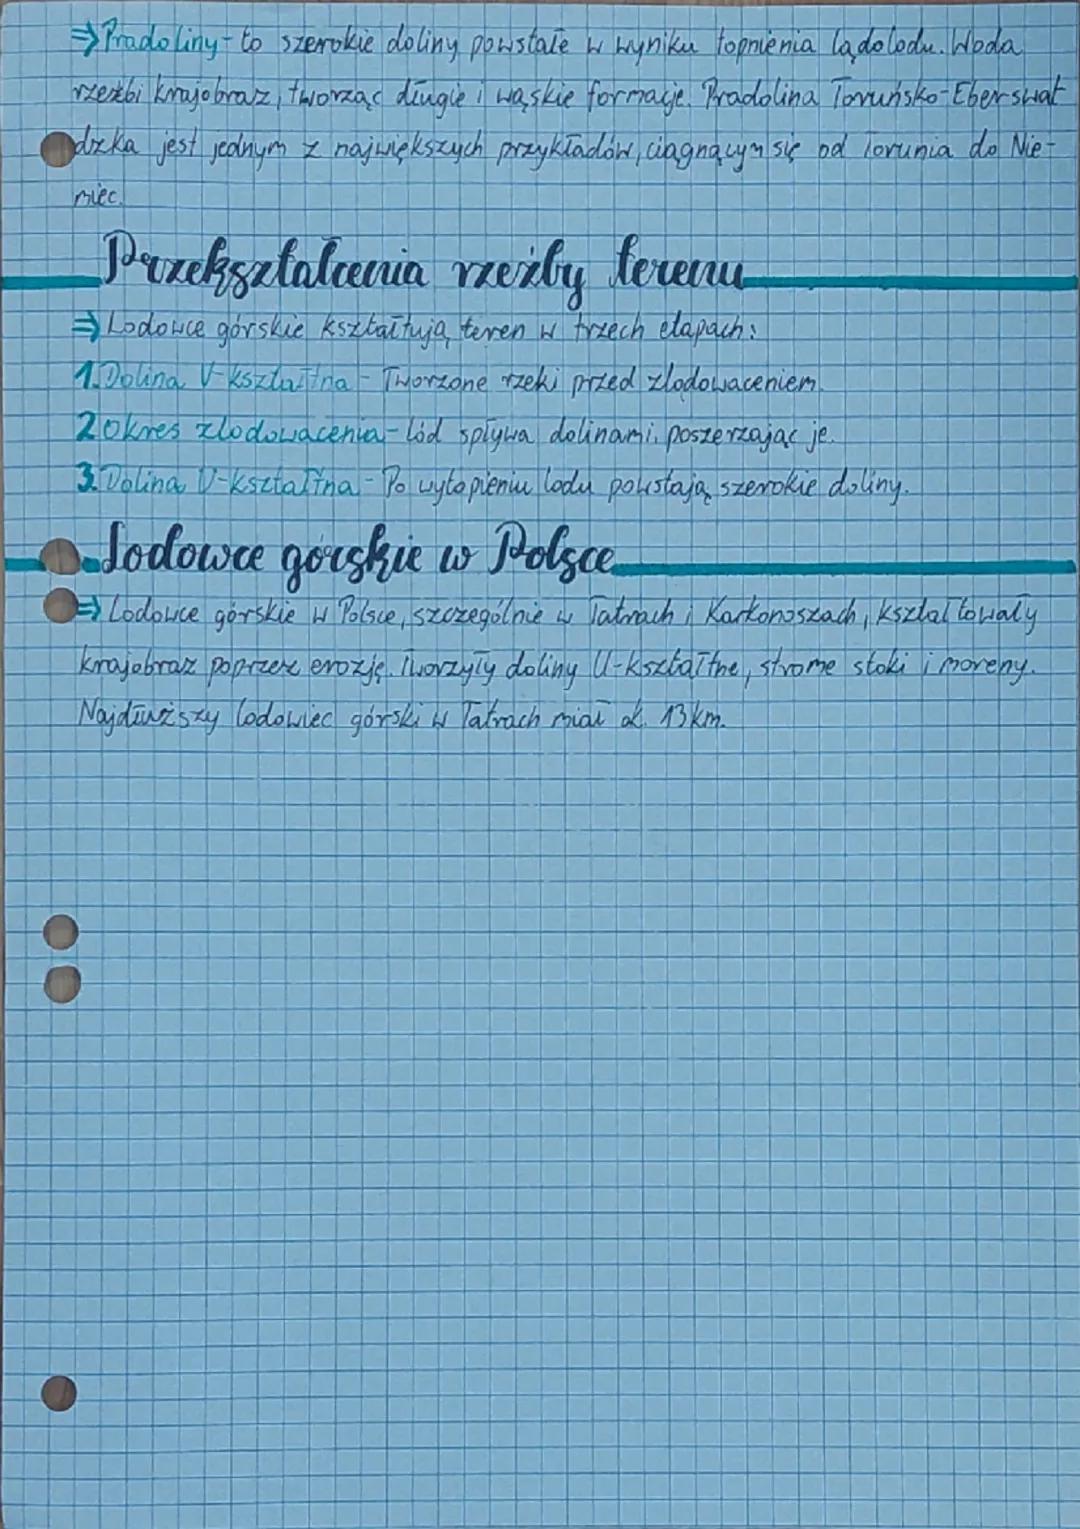 ⇒ Pradoliny - to szerokie doliny powstałe w wyniku topnienia lądolodu. Woda
rzeźbi krajobraz, tworząc długie i wąskie formacje. Pradolina Toruńsko-Eberswal
dzka jest jednym z największych przykładów, ciągnącym się od Torunia do Nie-
miec.
Przekształcenia rzeźby terenu
⇒ Lodowce górskie kształtują teren w trzech etapach:
1. Dolina V-kształtna - Tworzone rzeki przed zlodowaceniem.
2 okres zlodowacenia - lód spływa dolinami, poszerzając je.
3. Dolina U-kształtna - Po wytopieniu lodu powstają szerokie doliny.
Lodowce górskie w Polsce
⇒ Lodowce górskie w Polsce, szczególnie w Tatrach i Karkonoszach, kształtowały
krajobraz poprzez erozję. Tworzyły doliny U-kształtne, strome stoki i moreny.
Najdłuższy lodowiec górski w Tatrach miał ok. 13 km.